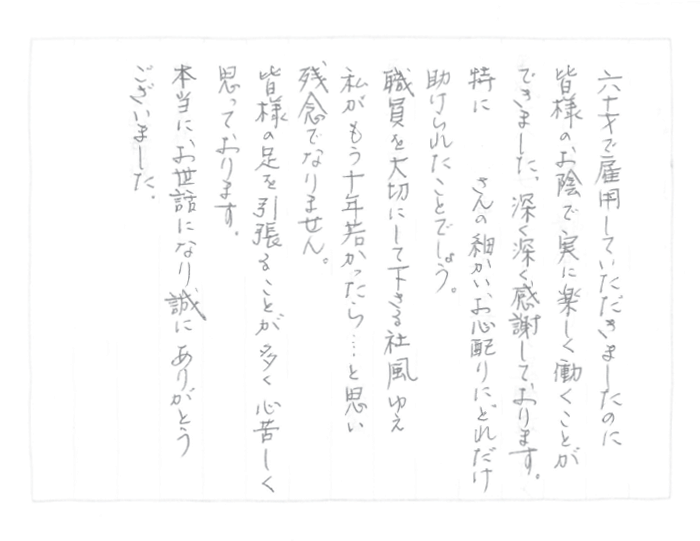 六十才で雇用していただきましたのに
皆様のお陰で実に楽しく働くことが
できました、深く深く感謝しております。
特に　　さんの細かいお心配りにどれだけ
助けられたことでしょう。
職員を大切にして下さる社風ゆえ
私がもう十年若かったら…と思い
残念でなりません。
皆様の足を引張ることが多く心苦しく
思っております。
本当にお世話になり誠にありがとう
ございました。